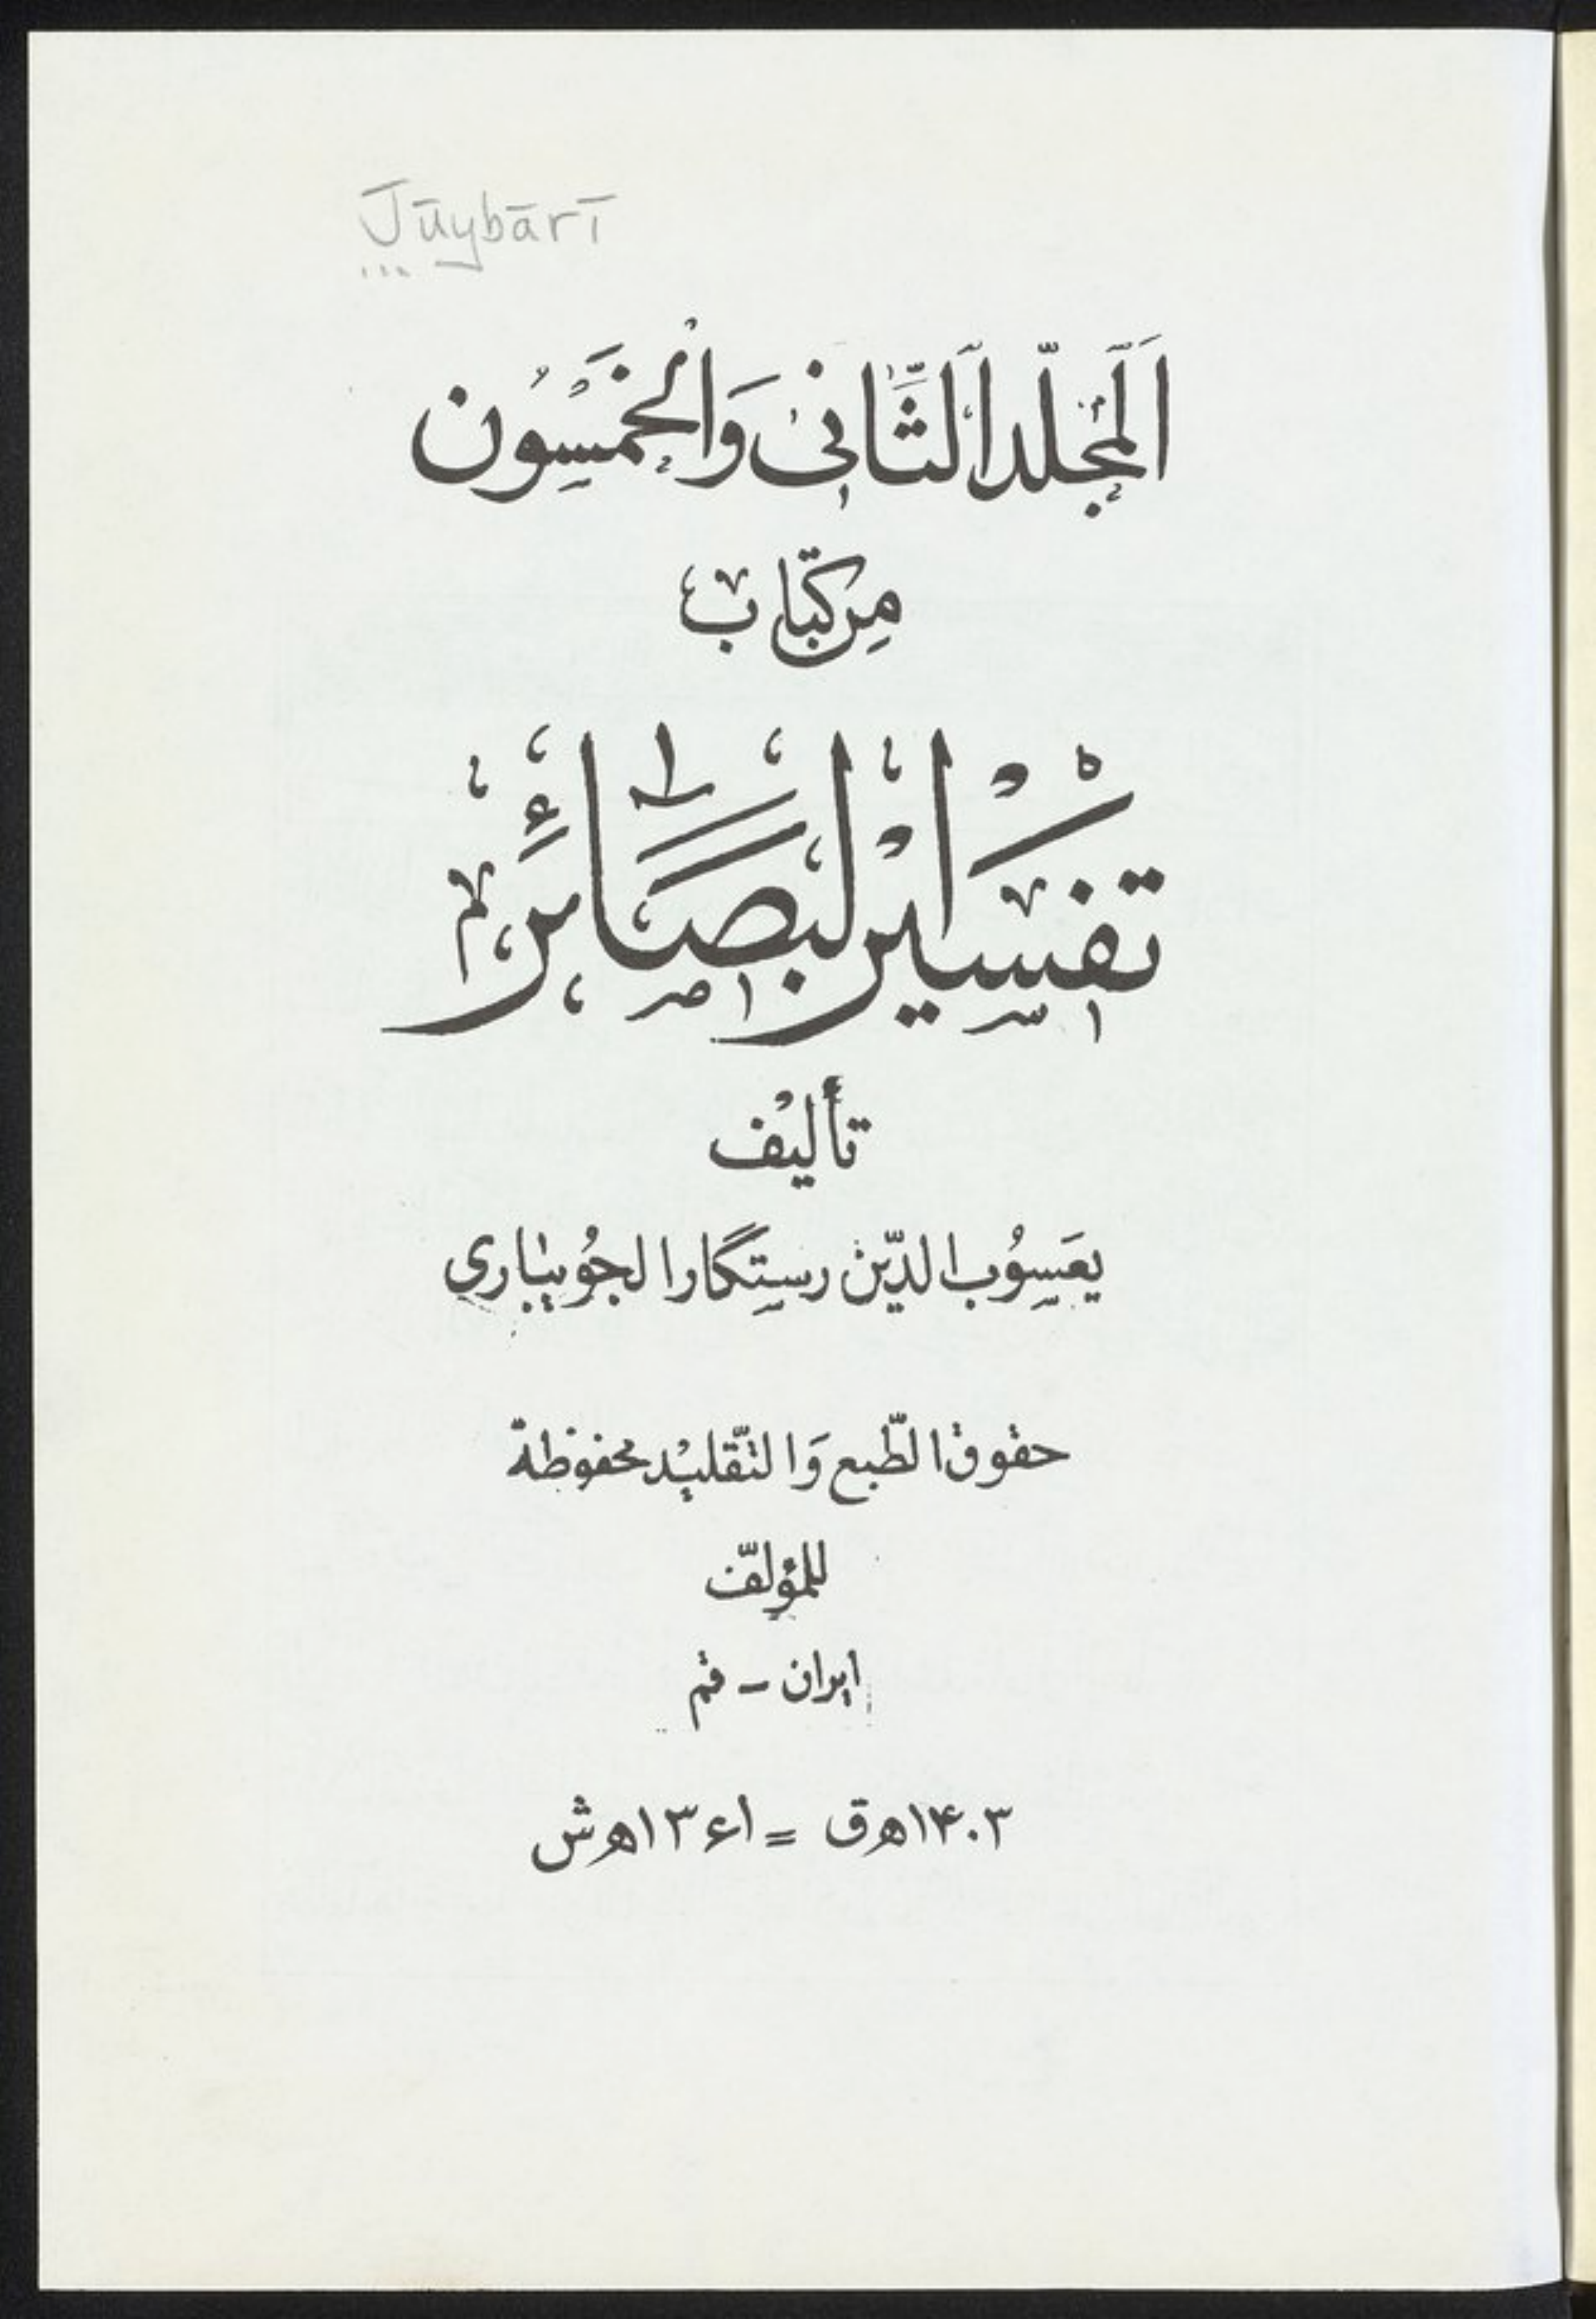 Jūybārī
اَلْمُجَلَّدُ الثَّانِی وَالْخَمْسُون
مِن کِتَاب
تَفْسِیْرُ الْبَصَائِر
تألیْف
یعَسُوب الدّین رستِگار الجُویباری
حقوق الطّبع وَالتّقلیْد محفوظة
للمؤلّف
ایران - قم
۱۴۰۳ هـ ق = ۱۳۶۱ هـ ش